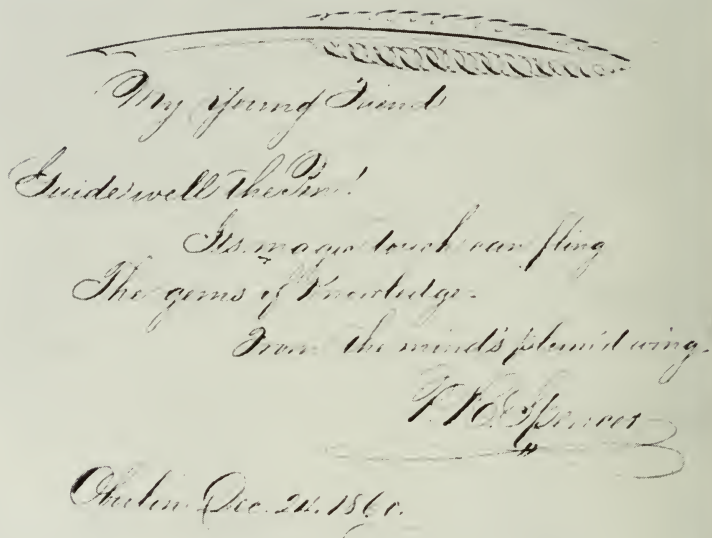 My Young Friend
Guide well the Pen!
Its magic touch can fling
The gems of Knowledge
From the mind's plum'd wing.
Spencer
Oberlin Dec. 24. 1860.